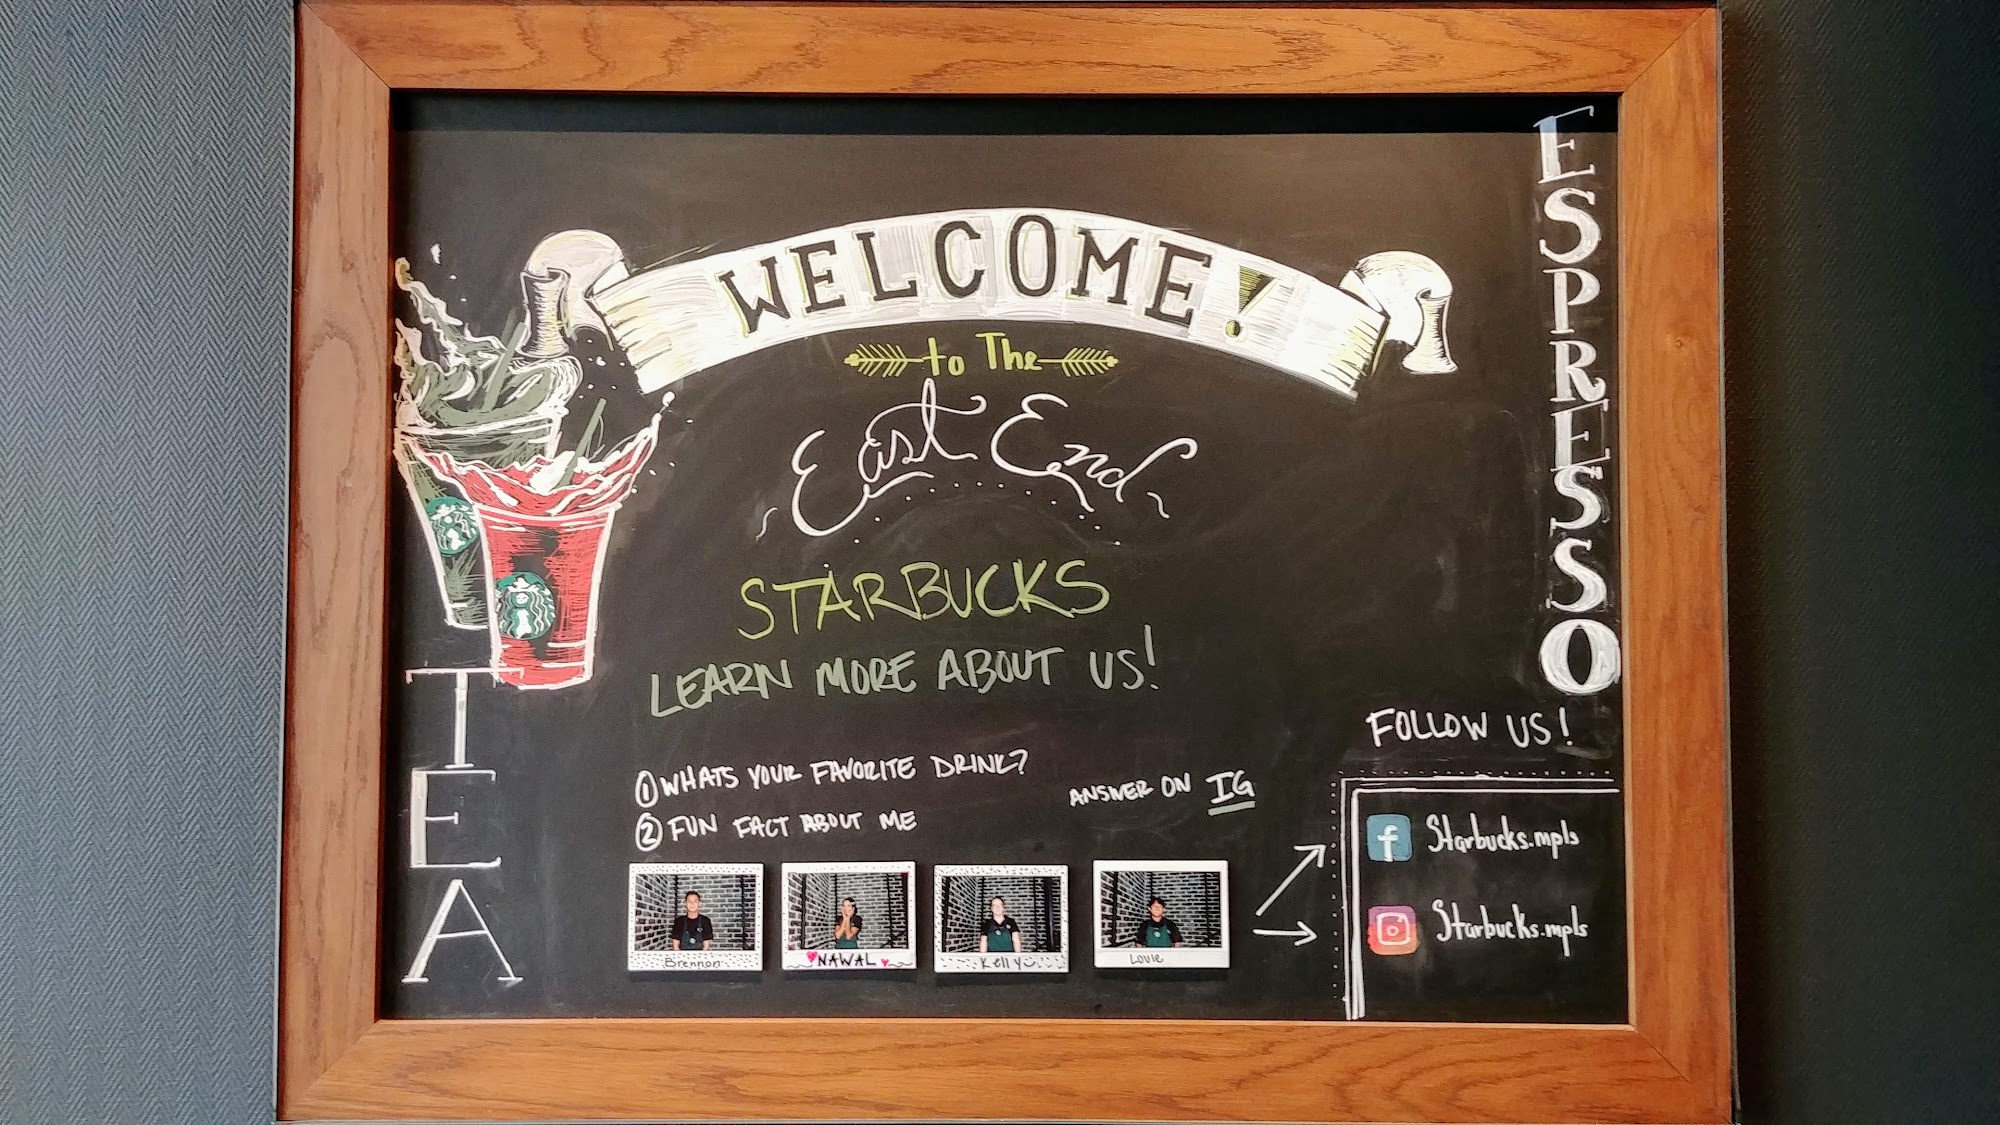 WELCOME!
to The
East End
STARBUCKS
LEARN MORE ABOUT US!
① WHATS YOUR FAVORITE DRINK?
② FUN FACT ABOUT ME
ANSWER ON IG
Brennon
NAWAL
Kelly
Louie
TEA
ESPRESSO
FOLLOW US!
f
Starbucks.mpls
Starbucks.mpls